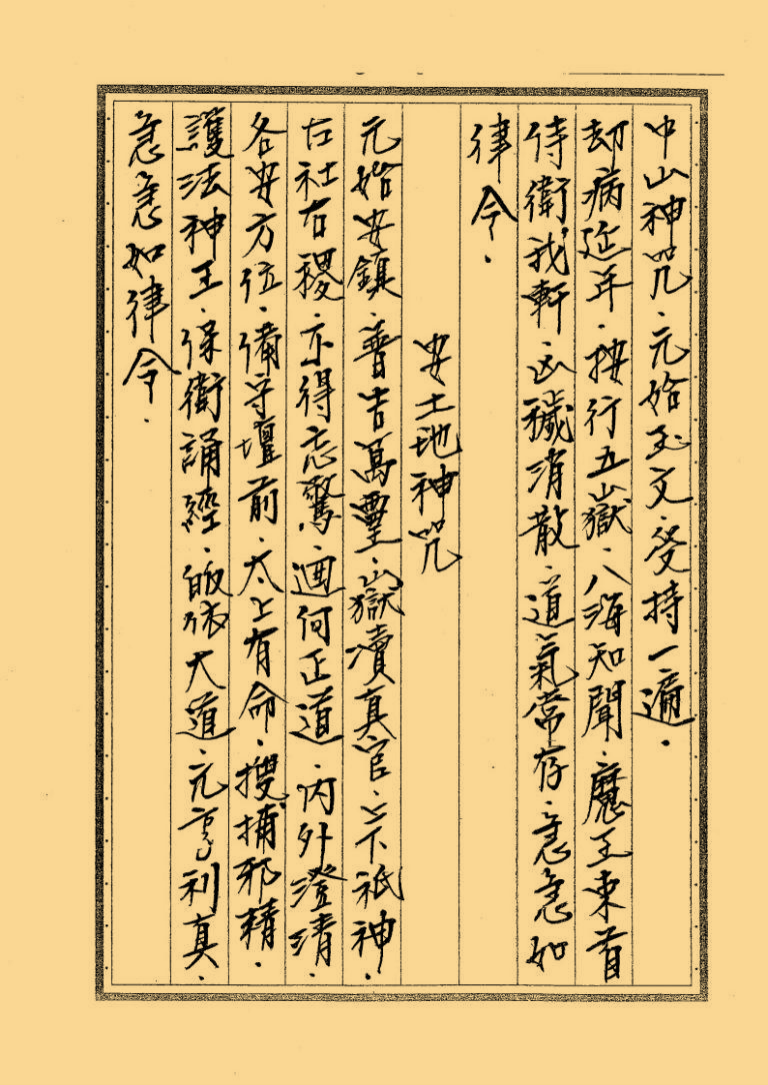 中山神咒．元始玉文．受持一遍．
却病延年．按行五嶽．八海知聞．魔王束首
侍衛我軒．凶穢消散．道氣常存．急急如
律令．
安土地神咒
元始安鎮．普告萬靈．嶽瀆真官．上下祇神．
左社右稷．亦得忘驚．迴向正道．內外澄清．
各安方位．備守壇前．太上有命．搜捕邪精．
護法神王．保衛誦經．皈依大道．元亨利真．
急急如律令．